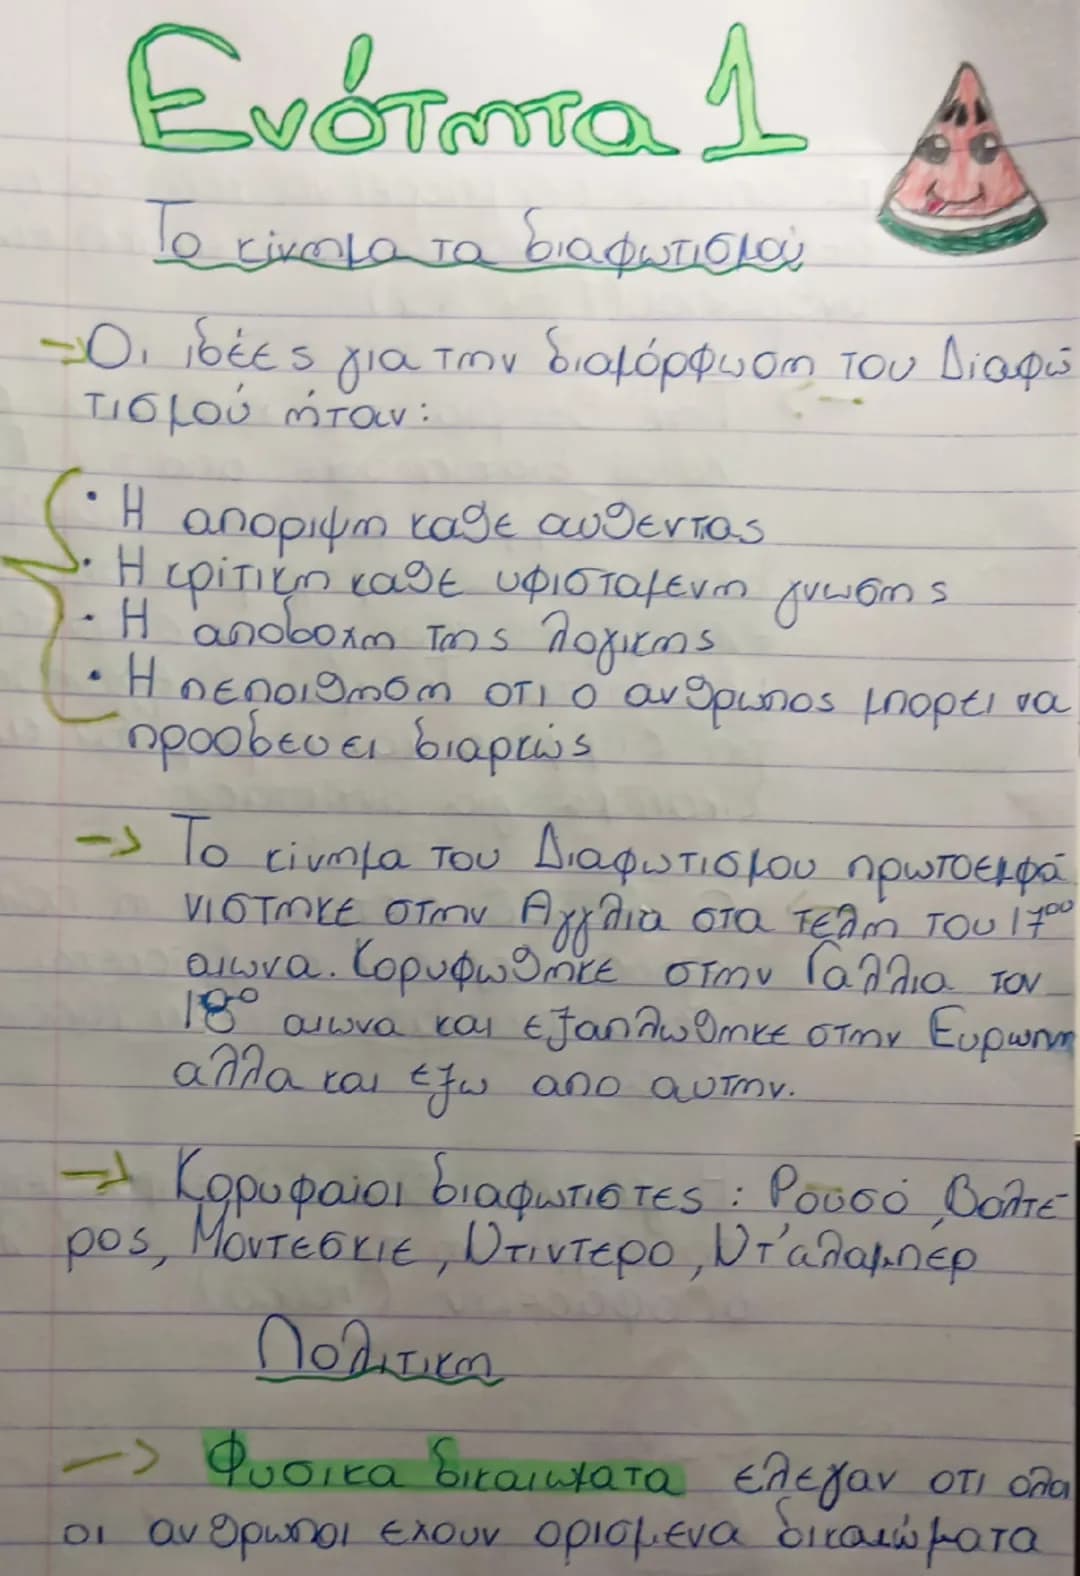 Ενότητα 1
Το κίνημα τα διαφωτισμού
Οι ιδέες για την διαμόρφωση του Διαφω
τισμού ήταν:
• Η αποριψη καθε αυθεντιας
• Η κριτικη καθε υφισταμενη γνωσης
• Η αποδοχη της λογικης
• Η πεποιθηση οτι ο ανθρωπος μπορει να
προοδευει διαρκώς
Το κίνημα του Διαφωτισμου πρωτοεμφα
νιστηκε στην Αγγλια στα τελη του 17ου
αιωνα. Κορυφωθηκε στην Γαλλια τον
18ο αιωνα και εξαπλωθηκε στην Ευρωπη
αλλα και εξω απο αυτην.
Κορυφαιοι διαφωτιστες : Ρουσό, Βολτέ
ρος, Μοντεσκιε, Ντιντερο, Ντ'αλαμπέρ
Πολιτικη
Φυσικα δικαιωματα ελεγαν οτι ολα
οι ανθρωποι εχουν ορισμενα δικαιώματα